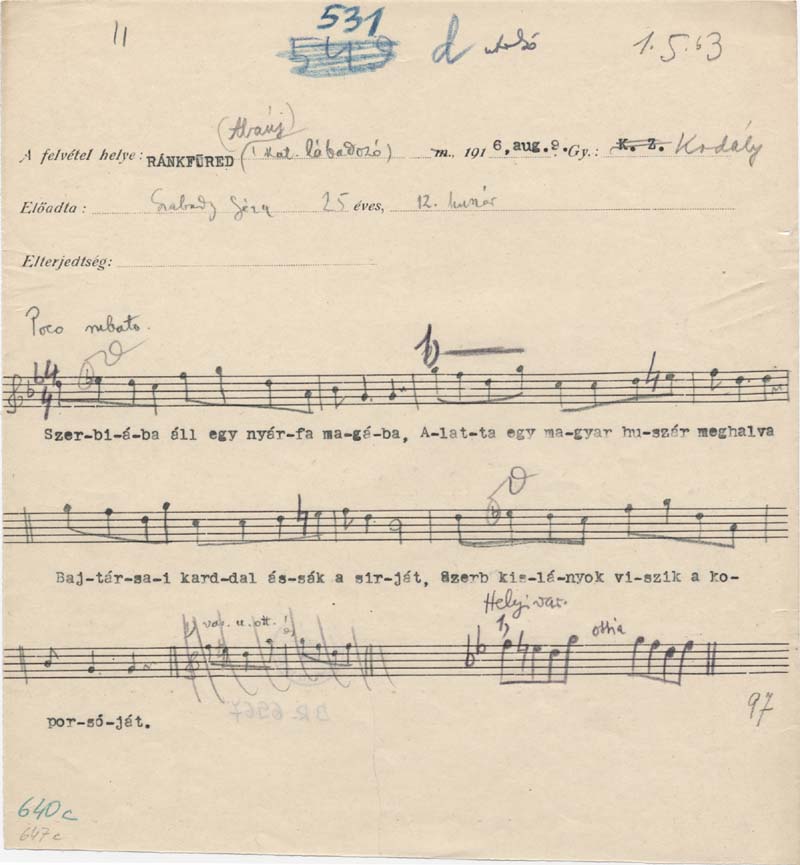 11
531
549
d utolsó
1.5.63
(Abaúj)
A felvétel helye: RÁNKFÜRED (kat. lábadozó) m., 1916, aug.9. Gy.: K. Z. Kodály
Előadta: Szabady Géza 25 éves, 12. huszár
Elterjedtség:
Poco rubato.
Szer-bi-á-ba áll egy nyár-fa ma-gá-ba, A-lat-ta egy ma-gyar hu-szár meghalva
Baj-tár-sa-i kard-dal ás-sák a sir-ját, Szerb kis-lá-nyok vi-szik a ko-
Helyi var.
1) var. u. ott.
1)
ossia
por-só-ját.
BR 6567
97
640c
647c